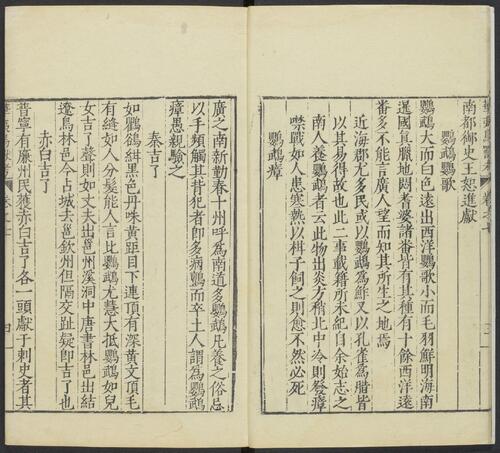 南都御史王恕進獻
鸚鵡鸚歌
鸚鵡大而白色遠出西洋鸚歌小而毛羽鮮明海南
暹國真臘地悶耆婆諸番皆有其種有十餘西洋遠
番多不能言廣人望而知其所生之地焉
近海郡尤多民或以鸚鵡爲鮓又以孔雀爲腊皆
以其易得故也此二事載籍所未紀自余始志之
南人養鸚鵡者云此物出炎方稍北中冷則發瘴
噤戰如人患寒熱以柑子飼之則愈不然必死
鸚鵡瘴
廣之南新勤春十州呼爲南道多鸚鵡凡養之俗忌
以手頻觸其背犯者即多病顫而卒土人謂爲鸚鵡
瘴愚親驗之
秦吉了
如鸜鵒紺黑色丹咮黃距目下連頂有深黃文頂毛
有縫如人分髮能人言比鸚鵡尤慧大抵鸚鵡如兒
女吉了聲則如丈夫出邕州溪洞中唐書林邑出結
遼鳥林邑今占城去邕欽州但隔交趾疑即吉了也
赤白吉了
普寧有廉州民獲赤白吉了各一頭獻于刺史者其